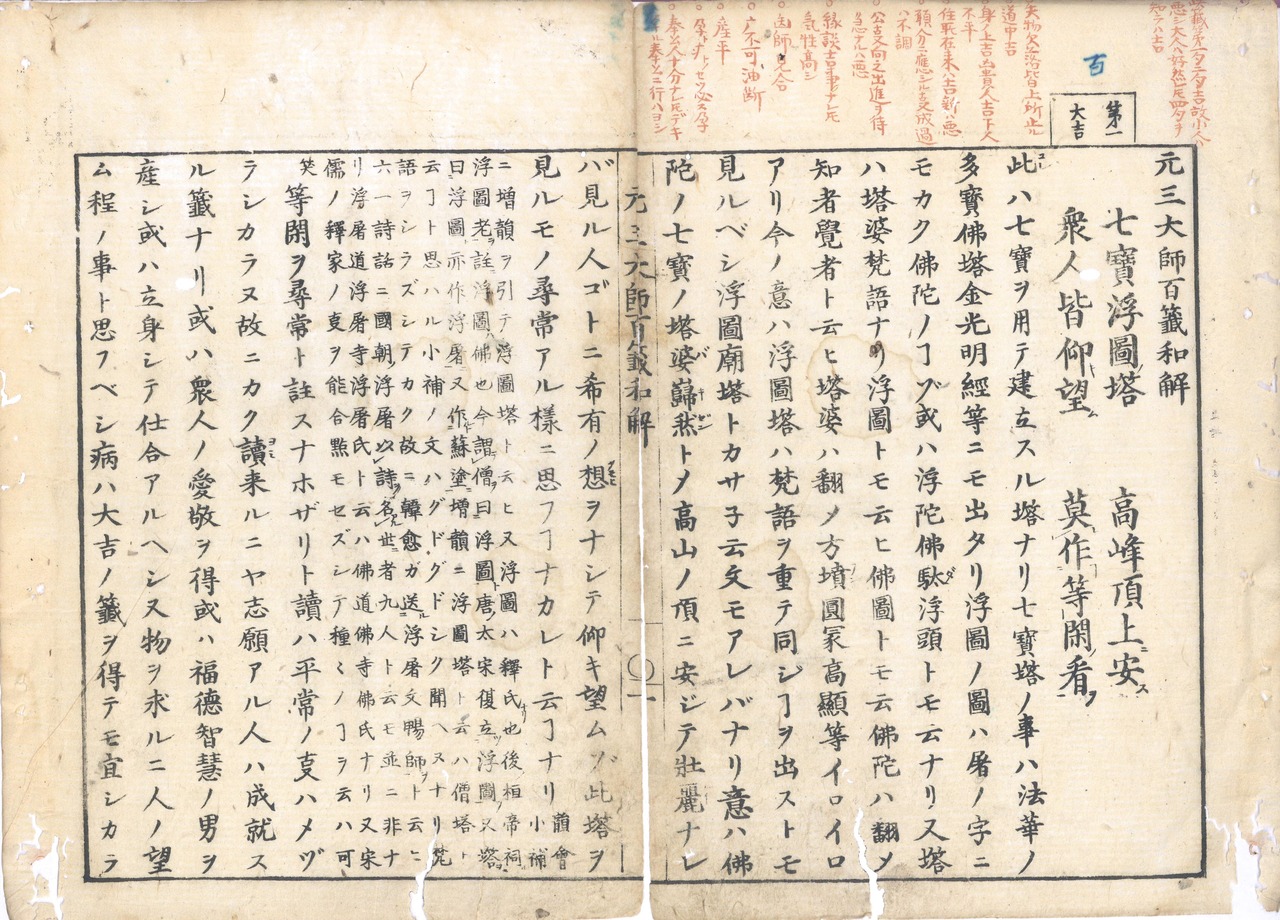 百
第一
大吉
道中吉
不平
ハ不調
公吉文向之出進ヲ待
急ナルハ悪
気性高シ
医師見合
广不可油断
産平
元三大師百籤和解
七寶浮圖塔 高峰頂上安
衆人皆仰望 莫作等閑看
此ハ七寶ヲ用テ建立スル塔ナリ七寶塔ノ事ハ法華ノ
多寶佛塔金光明經等ニモ出タリ浮圖ノ圖ハ屠ノ字ニ
モカク佛陀ノヿゾ或ハ浮陀佛駄浮頭トモ云ナリ又塔
ハ塔婆梵語ナリ浮圖トモ云ヒ佛圖トモ云佛陀ハ翻メ
知者覺者ト云ヒ塔婆ハ翻メ方墳圓冢高顯等イロイロ
アリ今ノ意ハ浮圖塔ハ梵語ヲ重テ同ジヿヲ出ストモ
見ルベシ浮圖廟塔トカサ子云文モアレバナリ意ハ佛
陀ノ七寶ノ塔婆巋然トメ高山ノ頂ニ安ジテ壮麗ナレ
元三大師百籤和解 〇一
バ見ル人ゴトニ希有ノ想ヲナシテ仰キ望ムゾ此塔ヲ
見ルモノ尋常アル様ニ思フヿナカレト云ヿナリ 韻會小補
ニ増韻ヲ引テ浮圖塔ト云ヒ又浮圖ハ釋氏也後桓帝祠
浮圖老註浮圖佛也今謂僧曰浮圖唐太宋復立浮圖又塔
曰浮圖亦作浮屠又作蘇塗増韻ニ浮圖塔ト云ハ僧塔ト
云ヿト思ハル小補ノ文ハグドグドシク聞ヘヌナリ梵
語ヲシラズシテカク故ニ韓愈ガ送浮屠文暢師ト云ニ
六一詩話ニ國朝浮屠以詩名世者九人ト云モ並ニ非ナ
リ浮屠道浮屠寺浮屠氏ト云ハ佛道佛寺佛氏ナリ又宋
儒ノ釋家ノ叓ヲ能合點モセズシテ種々ノヿヲ云ハ可
笑等閑ヲ尋常ト註スナホザリト讀ハ平常ノ叓ハメヅ
ラシカラヌ故ニカク讀来ルニヤ志願アル人ハ成就ス
ル籤ナリ或ハ衆人ノ愛敬ヲ得或ハ福德智慧ノ男ヲ
産シ或ハ立身シテ仕合アルヘシ又物ヲ求ルニ人ノ望
ム程ノ事ト思フベシ病ハ大吉ノ籤ヲ得テモ宜シカラ